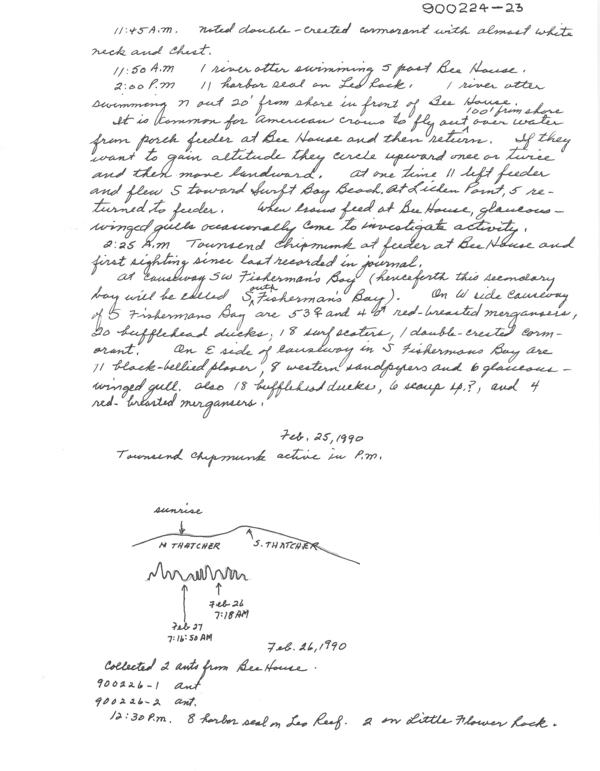 900224-23
11:45 A.M. noted double-crested cormorant with almost white
neck and chest.
11:50 A.M 1 river otter swimming S past Bee House.
2:00 P.M 11 harbor seal on Leo Rock. 1 river otter
swimming N out 20' from shore in front of Bee House.
It is common for American crows to fly out 100' from shore over water
from porch feeder at Bee House and then return. If they
want to gain altitude they circle upward once or twice
and then move landward. at one time 11 left feeder
and flew S toward Surf Bay Beach. At Lichen Point, 5 re-
turned to feeder. When crows feed at Bee House, glaucous-
winged gulls occasionally come to investigate activity.
2:25 P.M Townsend Chipmunk at feeder at Bee House and
first sighting since last recorded in journal.
at causeway SW Fisherman's Bay (henceforth this secondary
bay will be called South Fisherman's Bay). On W side causeway
of S Fishermans Bay are 5 3♀ and 4 ♂ red-breasted mergansers,
20 bufflehead ducks, 18 surf scoters, 1 double-crested corm-
orant. On E side of causeway in S Fishermans Bay are
11 black-bellied plover, 8 western sandpipers and 6 glaucous-
winged gull. also 18 bufflehead ducks, 6 scaup sp.?, and 4
red-breasted mergansers.
Feb. 25, 1990
Townsend Chipmunk active in P.M.
sunrise
N THATCHER
S. THATCHER
Feb 26
7:18 AM
Feb 27
7:16:50 AM
Feb. 26, 1990
Collected 2 ants from Bee House.
900226-1 ant
900226-2 ant.
12:30 P.M. 8 harbor seal on Leo Reef. 2 on Little Flower Rock.